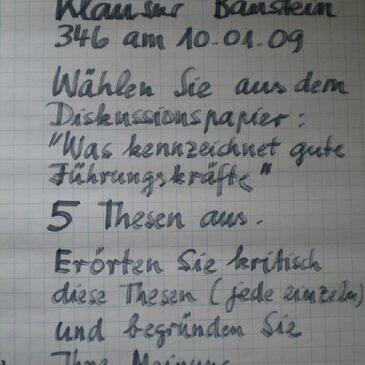 Klausur Bamstein
346 am 10.01.09
Wählen Sie aus dem
Diskussionspapier:
"Was kennzeichnet gute
Führungskräfte"
5 Thesen aus.
Erörten Sie kritisch
diese Thesen (jede einzeln)
und begründen Sie
Ihre Meinung